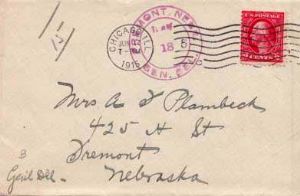 CHICAGO, ILL.
1915
FREMONT, NEBR.
18
GEN. DEL.
U.S. POSTAGE
2 CENTS 2
Mrs A T Plambeck
425 H St
Fremont
Nebraska
3
Genl Del